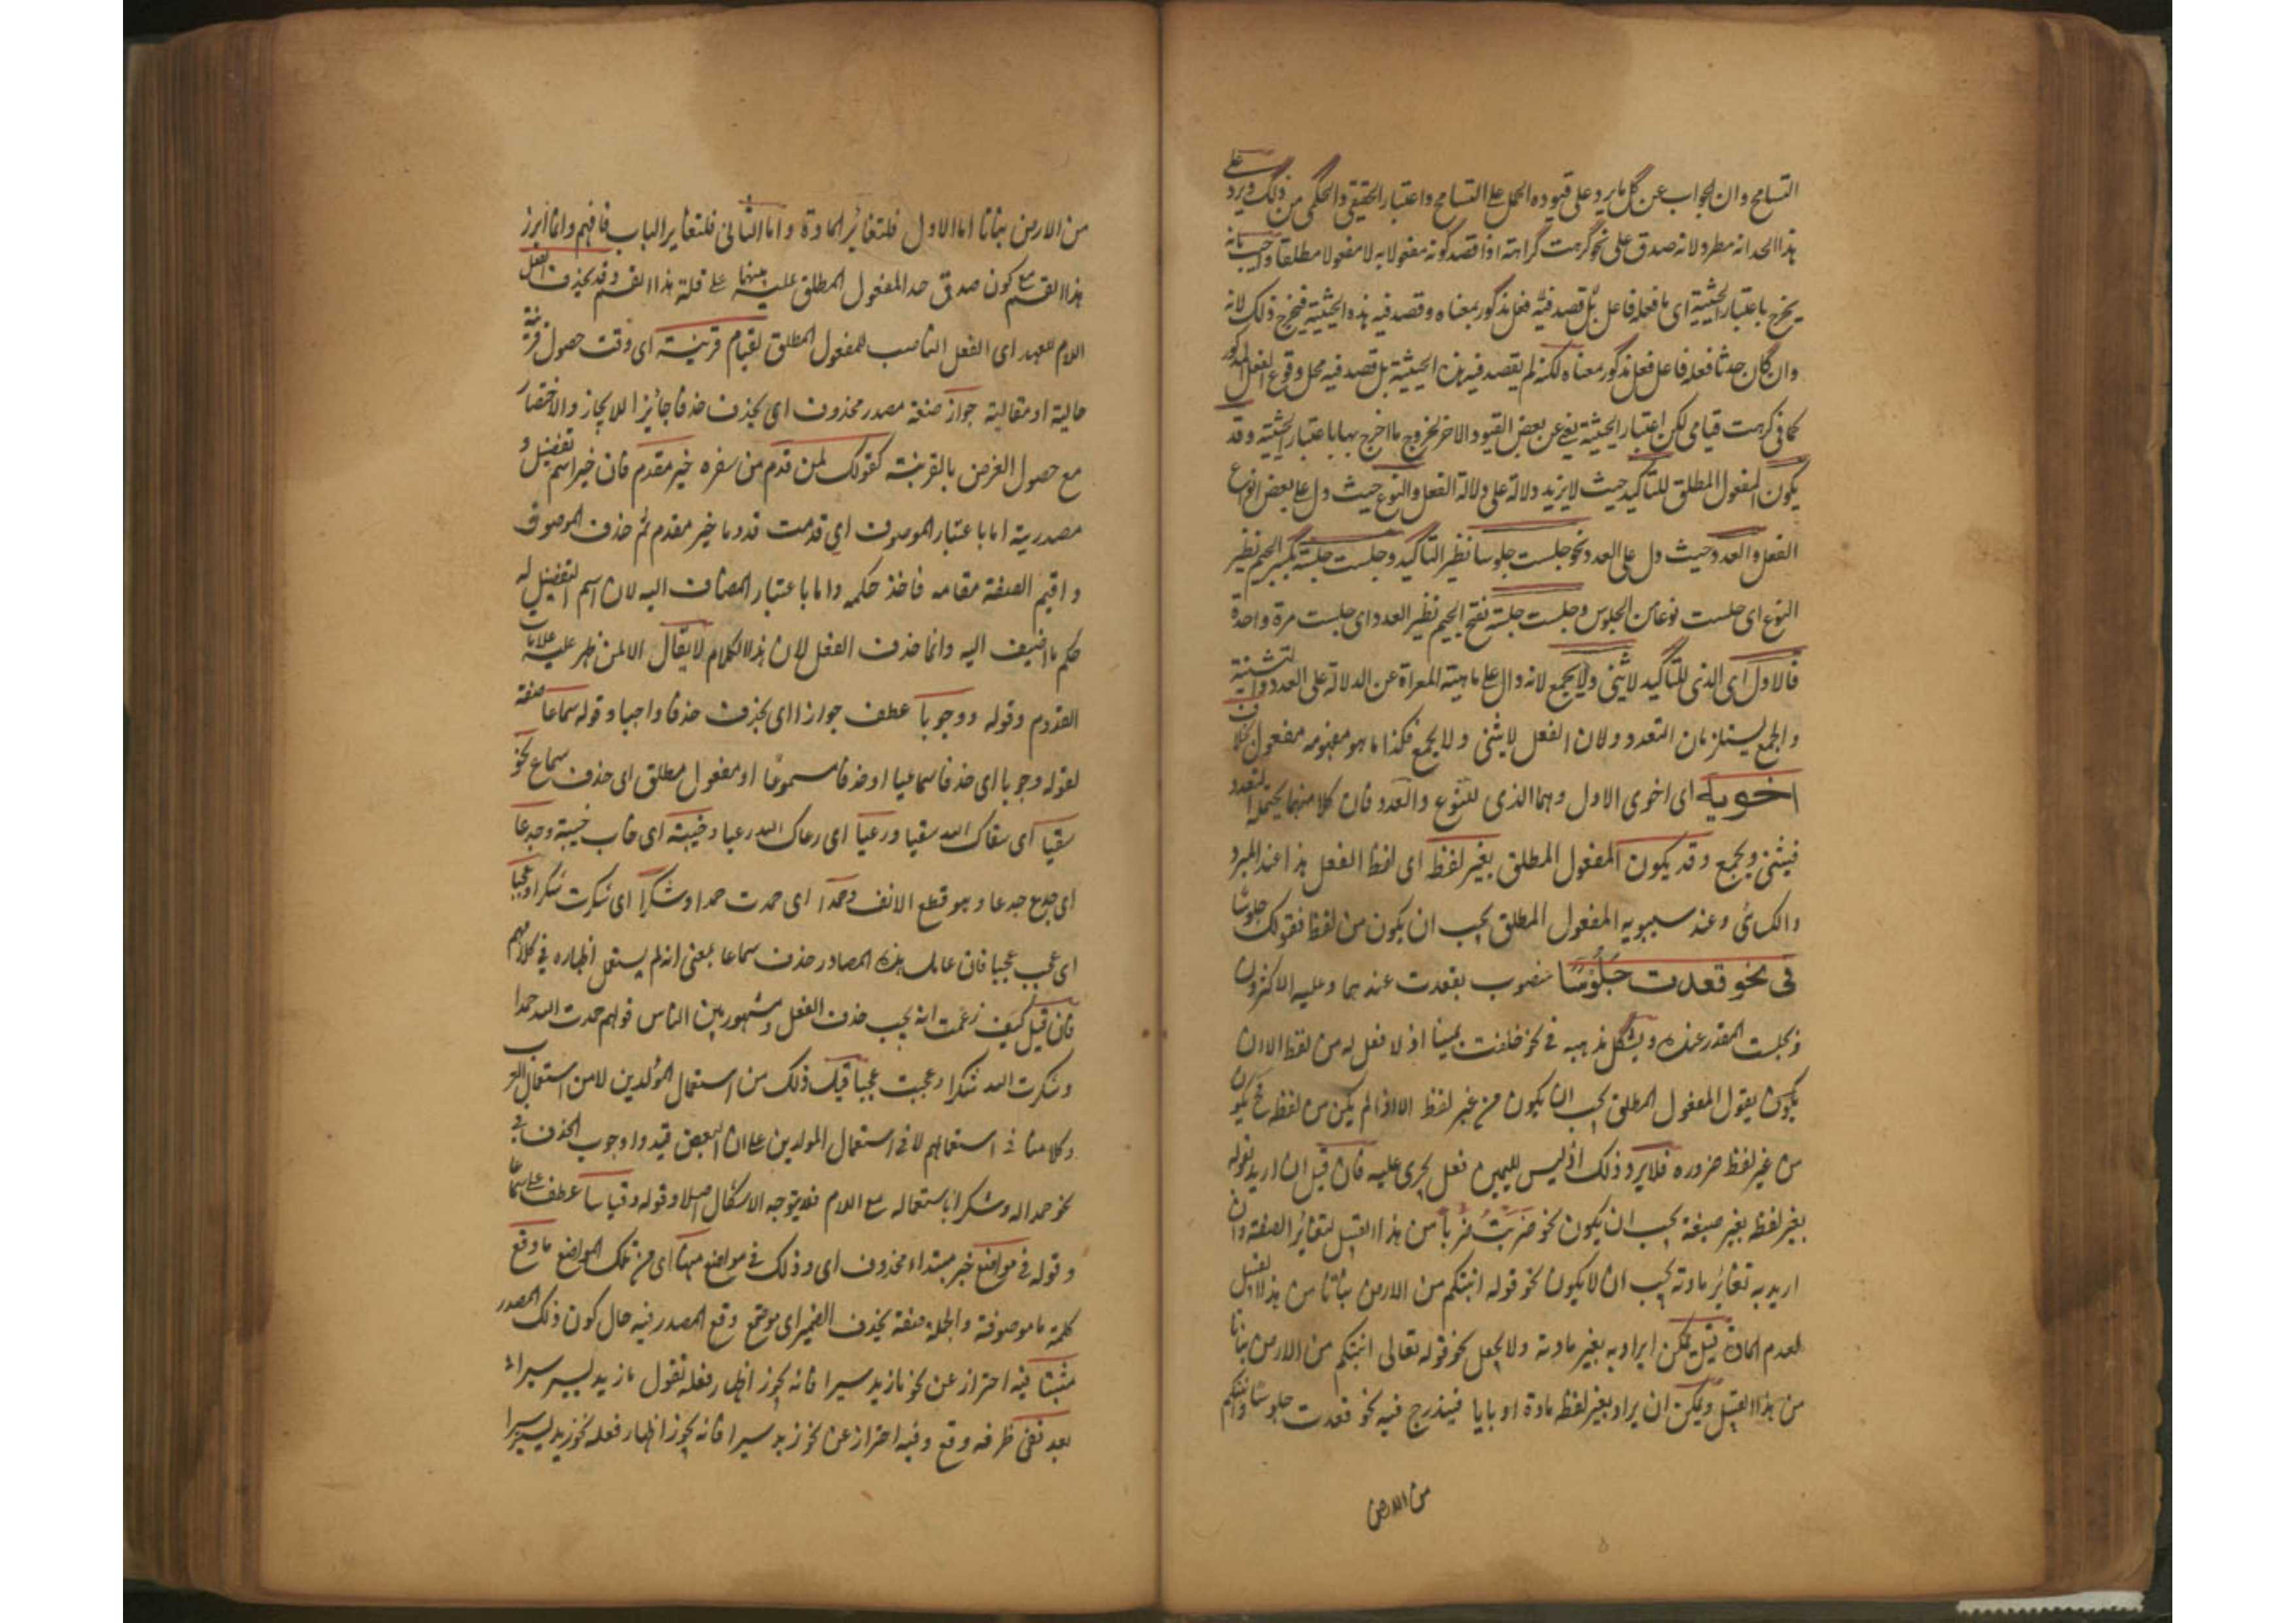 التسامح وان الجواب عن كل ما يرد على قيوده الحمل على التسامح واعتبار الحقيقي والحكمي من ذلك ويرد على
هذا الحد انه مطرد لانه صدق على نحو كرهت كراهته اذا قصد كونه مفعولا به لا مفعولا مطلقا واجيب بانه
يخرج باعتبار الحيثية اى ما فعله فاعل بل قصد فيه فعل مذكور بمعناه وقصد فيه هذه الحيثية فيخرج ذلك لانه
وان كان حدثا فعله فاعل فعل مذكور معناه لكنه لم يقصد فيه هذه الحيثية بل قصد فيه محل وقوع الفعل المذكور
كما فى كرهت قيامى لكن اعتبار الحيثية يغنى عن بعض القيود الاخر لخروج ما اخرج بها باعتبار الحيثية وقد
يكون المفعول المطلق للتاكيد حيث لا يزيد دلالة على دلالة الفعل والنوع حيث دل على بعض انواع
الفعل والعدد حيث دل على العدد نحو جلست جلوسا نظير التاكيد وجلست جلسة بكسر الجيم نظير
النوع اى جلست نوعا من الجلوس وجلست جلسة بفتح الجيم نظير العدد اى جلست مرة واحدة
فالاول اى الذى للتاكيد لا يثنى ولا يجمع لانه دال على ماهية المعراة عن الدلالة على العدد والتثنية
والجمع يستلزمان التعدد ولان الفعل لا يثنى ولا يجمع فكذا ما هو مفهومه مفعول بخلاف
اخويه اى اخوى الاول وهما الذى للنوع والعدد فان كلا منهما يحتمل التعدد
فيثنى ويجمع وقد يكون المفعول المطلق بغير لفظ اى لفظ الفعل هذا عند المبرد
والكسائى وعند سيبويه المفعول المطلق يجب ان يكون من لفظ فقولك جلوسا
فى نحو قعدت جلوسا منصوب بقعدت عندهما وعليه الاكثرون
وبجلست المقدر عنده ويشكل مذهبه فى نحو حلفت يمينا اذ لا فعل له من لفظ الا ان
يكون يقول المفعول المطلق يجب ان يكون من غير لفظ الا اذا لم يكن من لفظه فح يكون
من غير لفظ ضروره فلا يرد ذلك اذ ليس لليمين فعل يجرى عليه فان قيل ان اريد بقوله
بغير لفظ بغير صيغة يجب ان يكون نحو ضربت ضربا من هذا القبيل لتغاير الصيغة وان
اريد به تغاير مادته يجب ان لا يكون نحو قوله انبتكم من الارض نباتا من هذا القبيل
لعدم المادة قيل يمكن ايراد به بغير مادته ولا يجعل نحو قوله تعالى انبتكم من الارض نباتا
من هذا القبيل ويمكن ان يراد بغير لفظ مادة او بابا فيندرج فيه نحو قعدت جلوسا وانبتكم
من الارض
من الارض نباتا اما الاول فلتغاير المادة واما الثانى فلتغاير الباب فافهم وانما ابرز
هذا القسم مع كون صدق حد المفعول المطلق عليه بينهما على قلة هذا القسم وقد يحذف الفعل
اللام للعهد اى الفعل الناصب للمفعول المطلق لقيام قرينة اى وقت حصول قرينة
حالية او مقالية جواز صفة مصدر محذوف اى يحذف حذفا جائزا للايجاز والاختصار
مع حصول الغرض بالقرينة كقولك لمن قدم من سفره خير مقدم فان خير اسم تفضيل و
مصدرية اما باعتبار الموصوف اى قدمت قدوما خير مقدم ثم حذف الموصوف
و اقيم الصفة مقامه فاخذ حكمه واما باعتبار المضاف اليه لان اسم التفضيل له
حكم ما اضيف اليه وانما حذف الفعل لان هذا الكلام لا يقال الا لمن ظهر عليه علامات
القدوم وقوله ووجوبا عطف جوازا اى يحذف حذفا واجبا وقوله سماعا صفة
لقوله وجوبا اى حذفا سماعيا او حذفا مسموعا او مفعول مطلق اى حذف سماع نحو
سقيا اى سقاك الله سقيا ورعيا اى رعاك الله رعيا وخيبة اى خاب خيبة وجدعا
اى جدع جدعا وهو قطع الانف وحمدا اى حمدت حمدا وشكرا اى شكرت شكرا وعجبا
اى عجب عجبا فان عامل هذه المصادر حذف سماعا بمعنى انه لم يستعمل اظهاره فى كلامهم
فان قيل كيف زعمت انه يجب حذف الفعل ومشهور بين الناس قولهم حمدت الله حمدا
وشكرت الله شكرا وعجبت عجبا قيل ذلك من استعمال المولدين لا من استعمال العرب
وكلامنا فى استعمالهم لا فى استعمال المولدين على ان البعض قيدوا وجوب الحذف فى
نحو حمدا له وشكرا باستعماله مع اللام فلا يتوجه الاشكال اصلا وقوله وقياسا عطف على سماعا
وقوله فى مواضع خبر مبتداء محذوف اى وذلك فى مواضع منها اى من تلك المواضع ما وقع
كلمة ما موصوفة والجملة صفة بحذف الضمير اى موضع وقع المصدر فيه حال كون ذلك المصدر
مثبتا فيه احتراز عن نحو ما زيد سيرا فانه يجوز اظهار فعله تقول ما زيد يسير سيرا
بعد نفى ظرفه وقع وفيه احتراز عن نحو زيد سيرا فانه يجوز اظهار فعله نحو زيد يسير سيرا